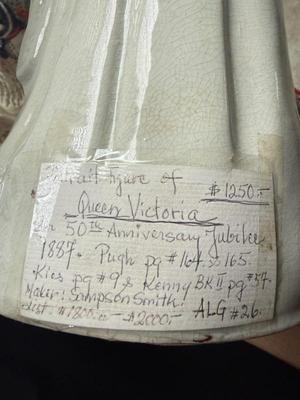 Portrait figure of
$1250.-
Queen Victoria
50th Anniversary Jubilee
1887. Pugh pg #164 & 165.
Kies pg #9 & Kenny BK II pg #37.
Maker: Sampson Smith.
est. $1800.- $2000.- ALG #26.